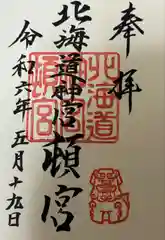 奉拝
北海道神宮頓宮
令和六年五月十九日
北海道
頓宮